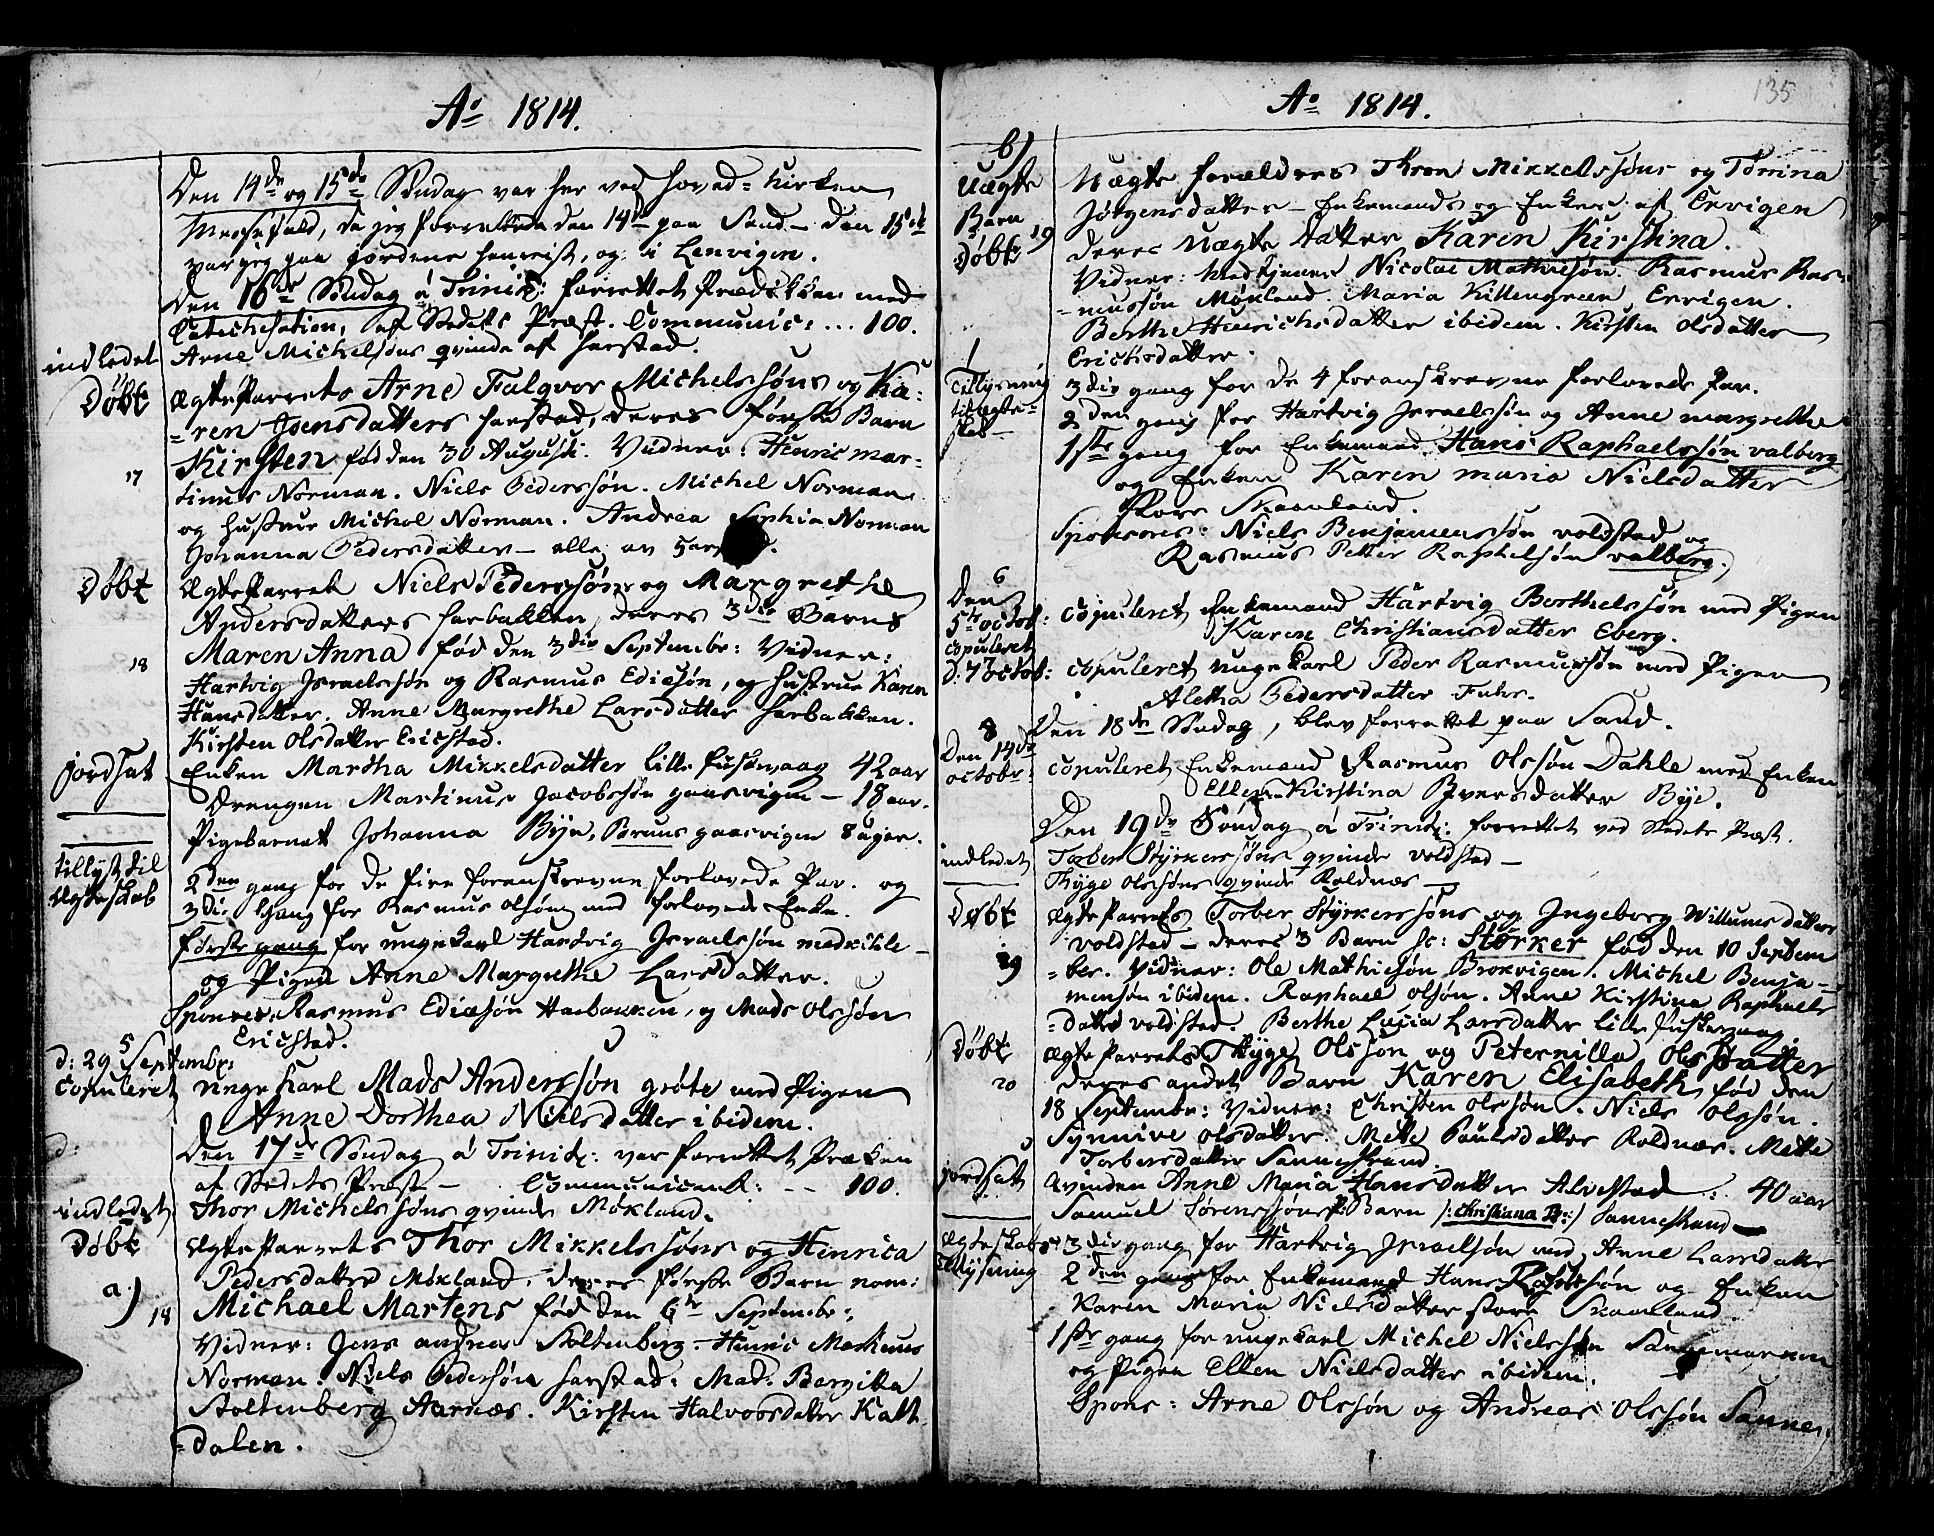 Ao 1814.
Den 14de og 15de Søndag var her ved Hoved-Kirken
Messefald, da jeg forrettede den 14de paa Sand - den 15de
var jeg paa og i Lenvigen.
Den 16de Søndag á Trinit: forrettet Prædiken med
Catechisation, af Stedets Præst. Communic: ... 100.
indledet Arne Michelsøns qvinde af Harstad.
Døbt Ægte Parrets Arne Falqvor Michelssøns og Ka-
-ren Joensdatters Harstad, deres første Barn
17 Kirsten fød den 30 Augusti. Vidner: Henric Mar-
tinus Norman. Niels Pederssøn. Michel Norman
og Hustrue Michol Norman. Andrea Sophia Norman
Johanna Pedersdatter - alle av Har
Døbt Ægte Parret Niels Pederssøns og Margrethe
Andersdatters Harbakken, deres 3die Barn
18 Maren Anna fød den 3die Septembr: Vidner:
Hartvig Israelssøn og Rasmus Edissøn, og Hustrue Karen
Hansdatter. Anne Margrethe Larsdatter Harbakken.
Kirsten Olsdatter Ericstad.
jordsat Enken Martha Mikkelsdatter lille Fuskevaag 42 aar
Drengen Martinus Jacobssøn Gaasvigen - 18 aar.
Pigebarnet Johanna Byn, Børnus Gaasvigen 8 uger.
tillyst til
Ægteskab
2den gang for de fire foranskrevne forlovede Par. og
3die Gang for Rasmus Olsøn med forlovede Enke.
første gang for unge Karl Hartvig Israelssøn
og Pigen Anne Margrethe Larsdatter.
Sponsores: Rasmus Ediesøn Harbakken, og Mads Olssøn
Ericstad.
5
d: 29 Septembr:
Copuleret unge Karl Mads Anderssøn Grøte med Pigen
Anne Dorthea Nielsdatter ibidem.
d: Den 17de Søndag á Trinit: var forrettet Præken
af Stedets Præst - Communicant: -- 100.
indledet Thor Michelssøns qvinde Møkland.
Døbt Ægte Parrets Thor Mikkelssøns og Henrica
Pedersdatter Møkland, deres første Barn nom:
a) 18 Michael Martens fød den 6te Septembr:
Vidner: Jens Andreas Soltenberg. Henric Martinus
Norman. Niels Pedersøn Harstad. Mad. Bergitta
Soltenberg Aarnæs. Kirsten Halvorsdatter Kalt-
-dalen.
135
Ao 1814.
b)
Uægte
Barn
Døbt 19
Uægte forældres Thron Mikkelssøns og Torrina
Jörgensdatter - Enkemands og Enkes af Ervigen
deres Uægte datter Karen Kirstina.
Vidner: Medhjelper Nicolai Mathiesøn. Rasmus Ras-
-mussøn Møkland. Maria Killengreen, Ervigen.
Berthe Henrichsdatter ibidem. Kirsten Olsdatter
Ericsdatter.
Tillysning
til Ægte-
skab
3die gang for de 4 foranskrevne forlovede Par.
2den gang for Hartvig Israelssøn og Anne Margrethe
1ste gang for Enkemand Hans Raphaelssøn Valberg
og Enken Karen Maria Nielsdatter
Store Skaanland.
Sponsores: Niels Benjamenssøn Voldstad og
Rasmus Petter Raphelsøn Valberg.
6
Den
5te octob: copuleret Enkemand Hartvig Berthelssøn med Pigen
Karen Christiansdatter Eberg.
copuleret
d. 7 octob: copuleret unge Karl Peder Rasmussøn med Pigen
Aletha Pedersdatter Fuhr.
8 Den 18de Søndag, blev forrettet paa Sand.
Den 14de
octobr: copuleret Enkemand Rasmus Olssøn Dahle med Enken
Ellen Kirstina Iversdatter Bye.
Den 19de Søndag á Trinit: forrettet ved Stedets Præst.
indledet Torber Styrkerssøns qvinde Voldstad -
Thyge Olssøns qvinde Roldnæs -
Døbt Ægte Parrets Torber Styrkerssøns og Ingeborg Willumsdatter
Voldstad - deres 3 Barn sc: Størker fød den 10 Septem
19 -ber. Vidner: Ole Mathiesøn Brokvigen. Michel Benja-
mensøn ibidem. Raphael Olsøn. Anne Kirstina Raphaels
-datter Voldstad. Berthe Lucia Larsdatter lille Fuskevaag
Døbt Ægte Parrets Thyge Olssøn og Peternilla Olsdatter
20 deres andet Barn Karen Elisabeth fød den
18 Septembr: Vidner: Christen Olssøn. Niels Olssøn.
Synnive Olsdatter. Mette Paulsdatter Roldnæs. Mette
Torbersdatter Sannestrand.
jordsat Qvinden Anne Maria Hansdatter Alvestad : 40 aar
Samuel Sørenssøns Barn /: Christiana :/ Sannestrand
Ægteskabs
Tillysning
3die gang for Hartvig Israelsøn med Anne Larsdatter
2den gang for Enkemand Hans Raphelssøn og Enken
Karen Maria Nielsdatter store Skaanland.
1ste gang for unge Karl Michel Nielssøn Sannemarken
og Pigen Ellen Nielsdatter ibidem.
Spons: Arne Olssøn og Andreas Olssøn Sanne.